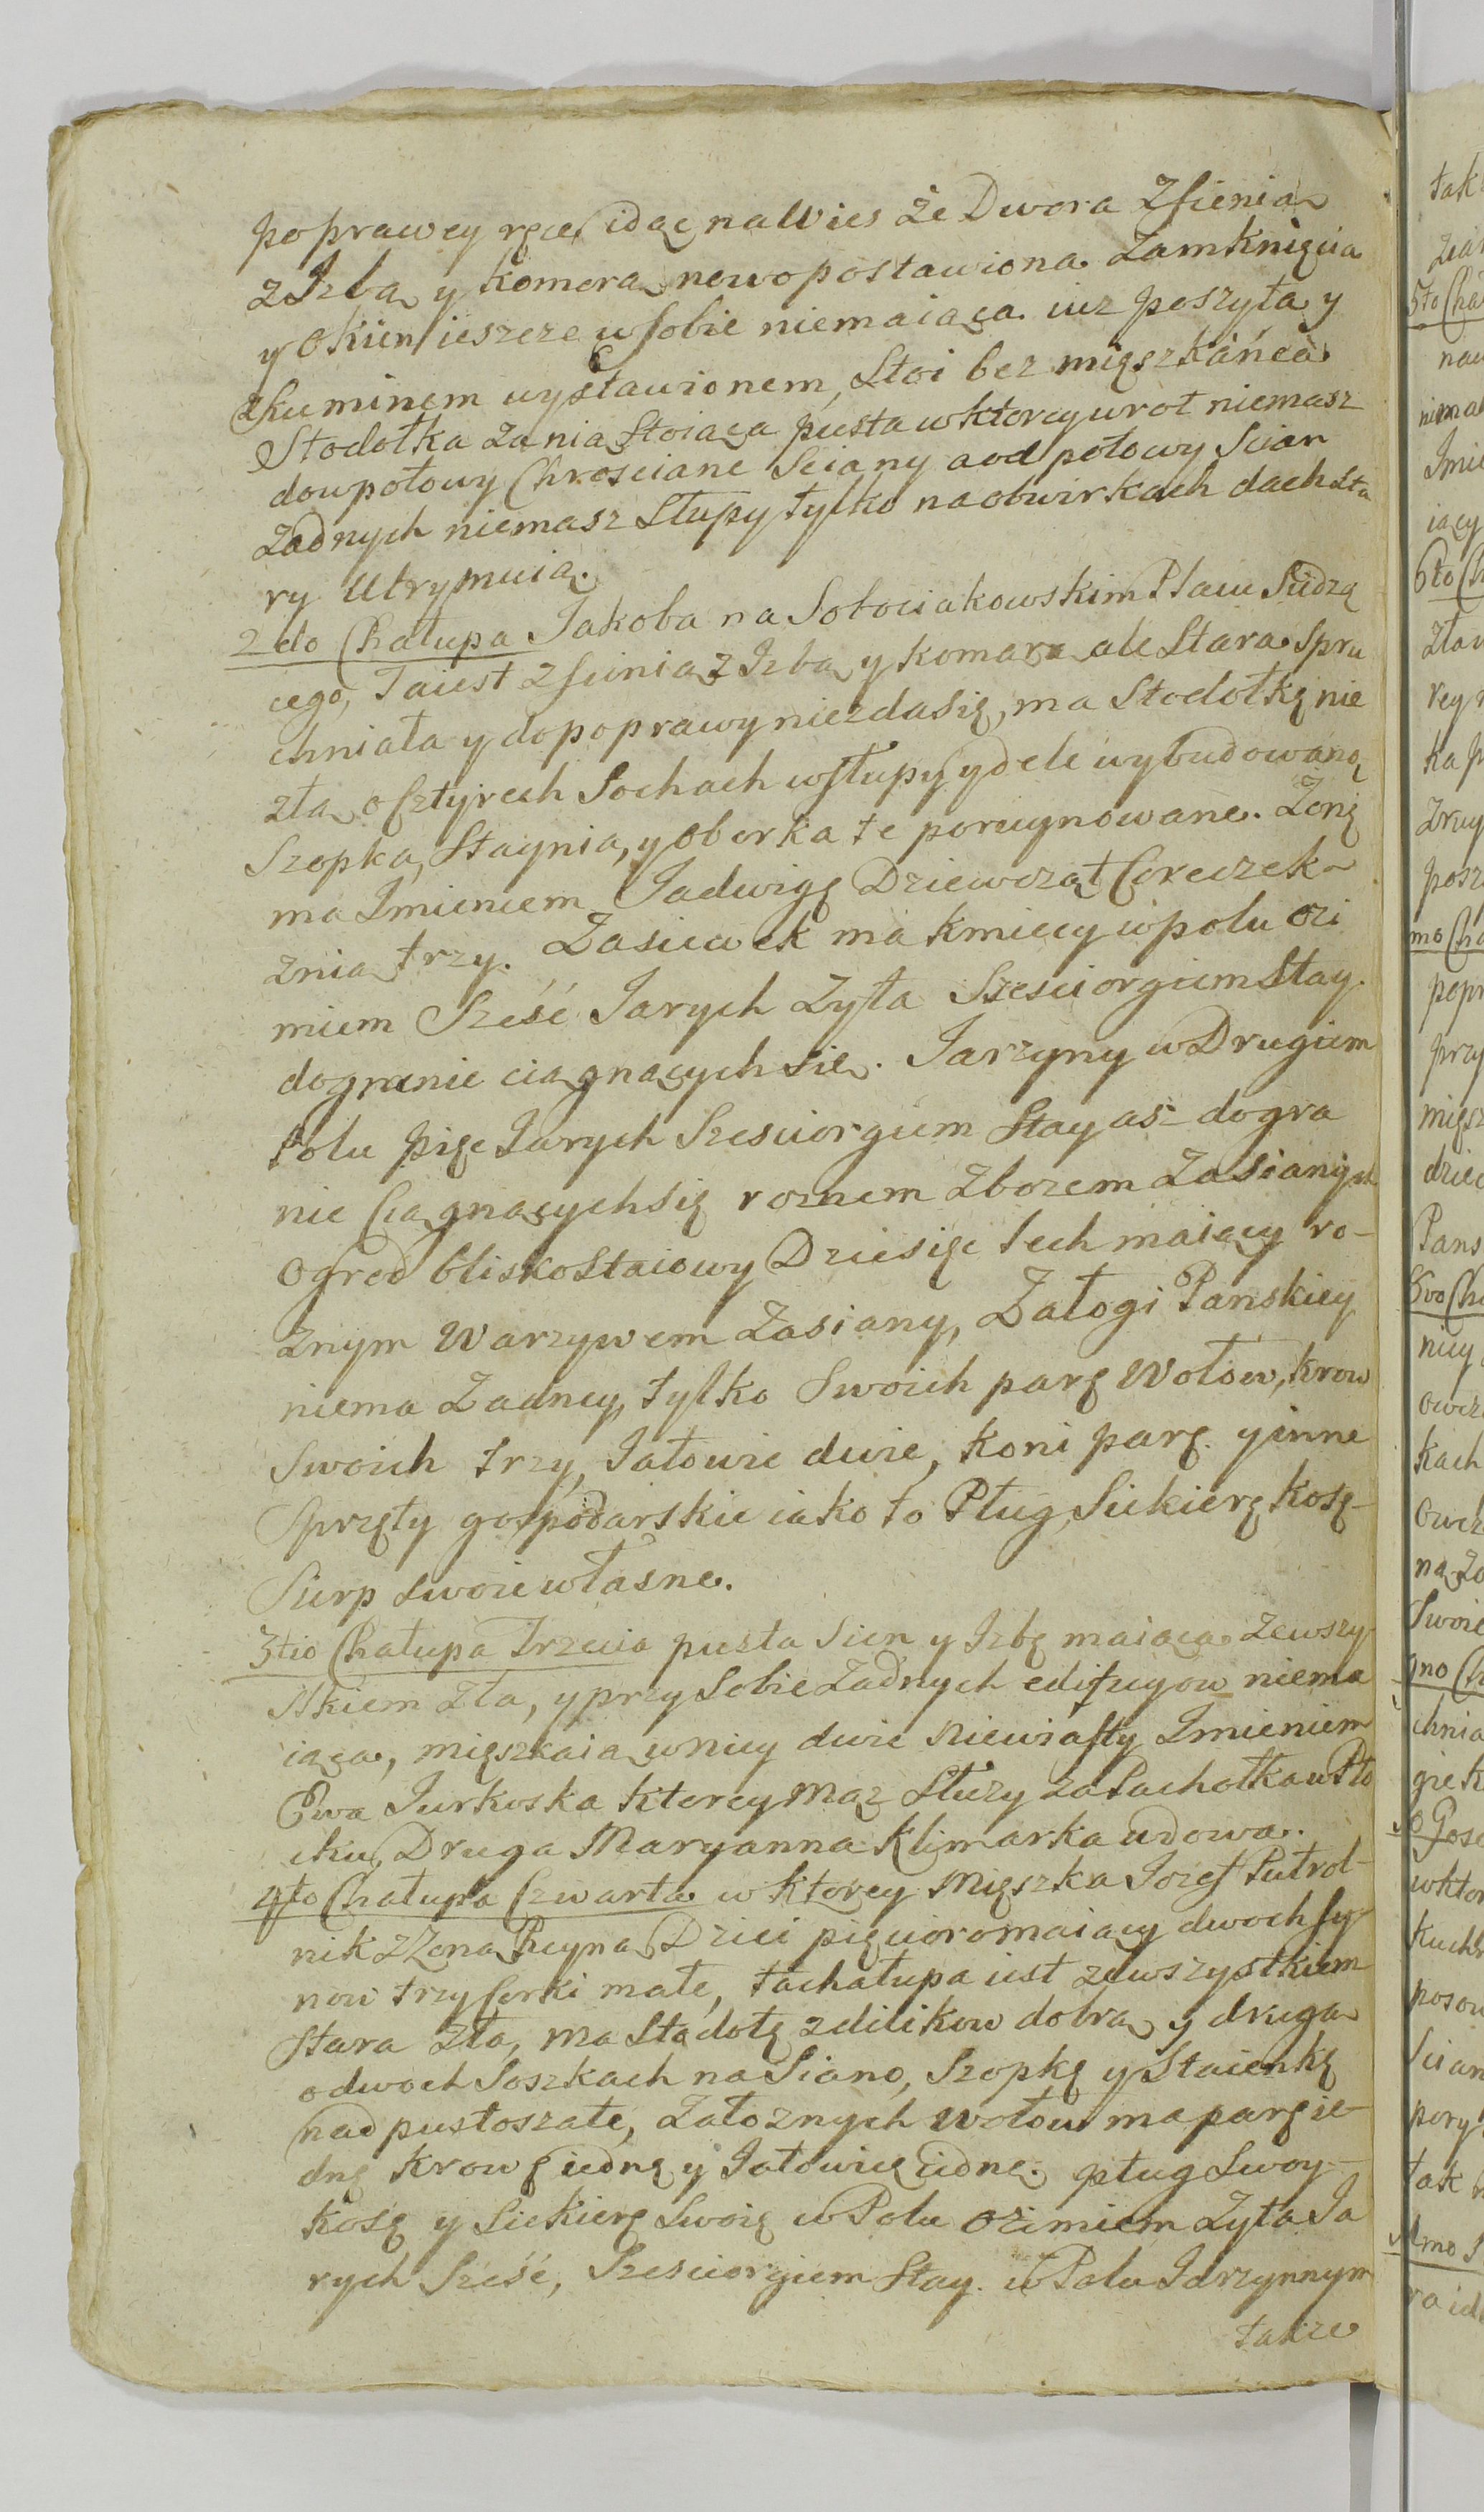 poprawey ręce idąc na Wies ze Dwora Zsienią
z Izbą y komorą nowopostawiona Zamknięcia
y Okien ieszcze w sobie niemaiąca iuz poszyta y
zkuminem wystawionem, Stoi bez mięszkańca
Stodołka za nią Stoiąca pusta w ktorey wrot niemasz
dowpołowy Chrosciane Sciany a od połowy Scian
Zadnych niemasz Słupy tylko na obwirkach dach sta
ry Utrymuią.
2do Chałupa Jakoba na Sobociakowskim Placu Siedzą
cego, Ta iest z sienią z Izbą y komorą ale Stara Spru
chniała y do poprawy niezda się, ma Stodołkę nie
złą o Sztyrech Sochach w słupy y dele wybudowaną
Szopka, Staynia, y Oborka te porwynowane. Zonę
ma Imieniem Jadwigę Dziewcząt Coreczek
z nią trzy. Zasiewek ma kmiecy w polu ozi
miem Sześć Jarych Zyta Szesciorgiem Stay
do granic ciągnących się. Jarzyny w Drugiem
Polu pięc Jarych Szesciorgiem Stay asz do gra
nic Ciągnących się roznem Zbozem Zasianych
Ogrod blisko Staiowy Dziesięc lech maiący ro-
Znym Warzywem Zasiany, Załogi Panskiey
niema Zadney, tylko Swoich parę Wołow, krow
Swoich trzy, Jałowic dwie, koni parę. y inne
Sprzęty gospodarskie iako to Pług, Siekierę, kosę
Sierp swoie własne.
3tio Chałupa Trzecia pusta Sien y Izbę maiąca Zewszy
stkiem zła, y przy Sobie Zadnych edificyow niema
iąca, mięszkaią w niey dwie Niewiasty Imieniem
Ewa Jurkoska ktorey Mąz Słuzy za Pachołka w Pło
cku, Druga Maryanna Klimarka wdowa.
4to Chałupa Czwarta w ktorey Mięszka Jozef Putrol-
nik z Zoną Reyną Dzieci pięcioro maiący dwoch sy
now trzy Corki małe, ta chałupa iest zewszystkiem
Stara zła, ma Stodołę z dilikow dobrą y drugą
o dwoch Soszkach na Siano, Szopkę y Staienkę
nad pustoszałe, Załoznych Wołow ma parę ie-
dnę krowę iednę y Jałowicę iednę. pług Swoy
kosę y Siekierę Swoię w Polu Ozimiem Zyta Ja
rych Sześć, Szesciorgiem Stay. w Polu Jarzynnym
takze